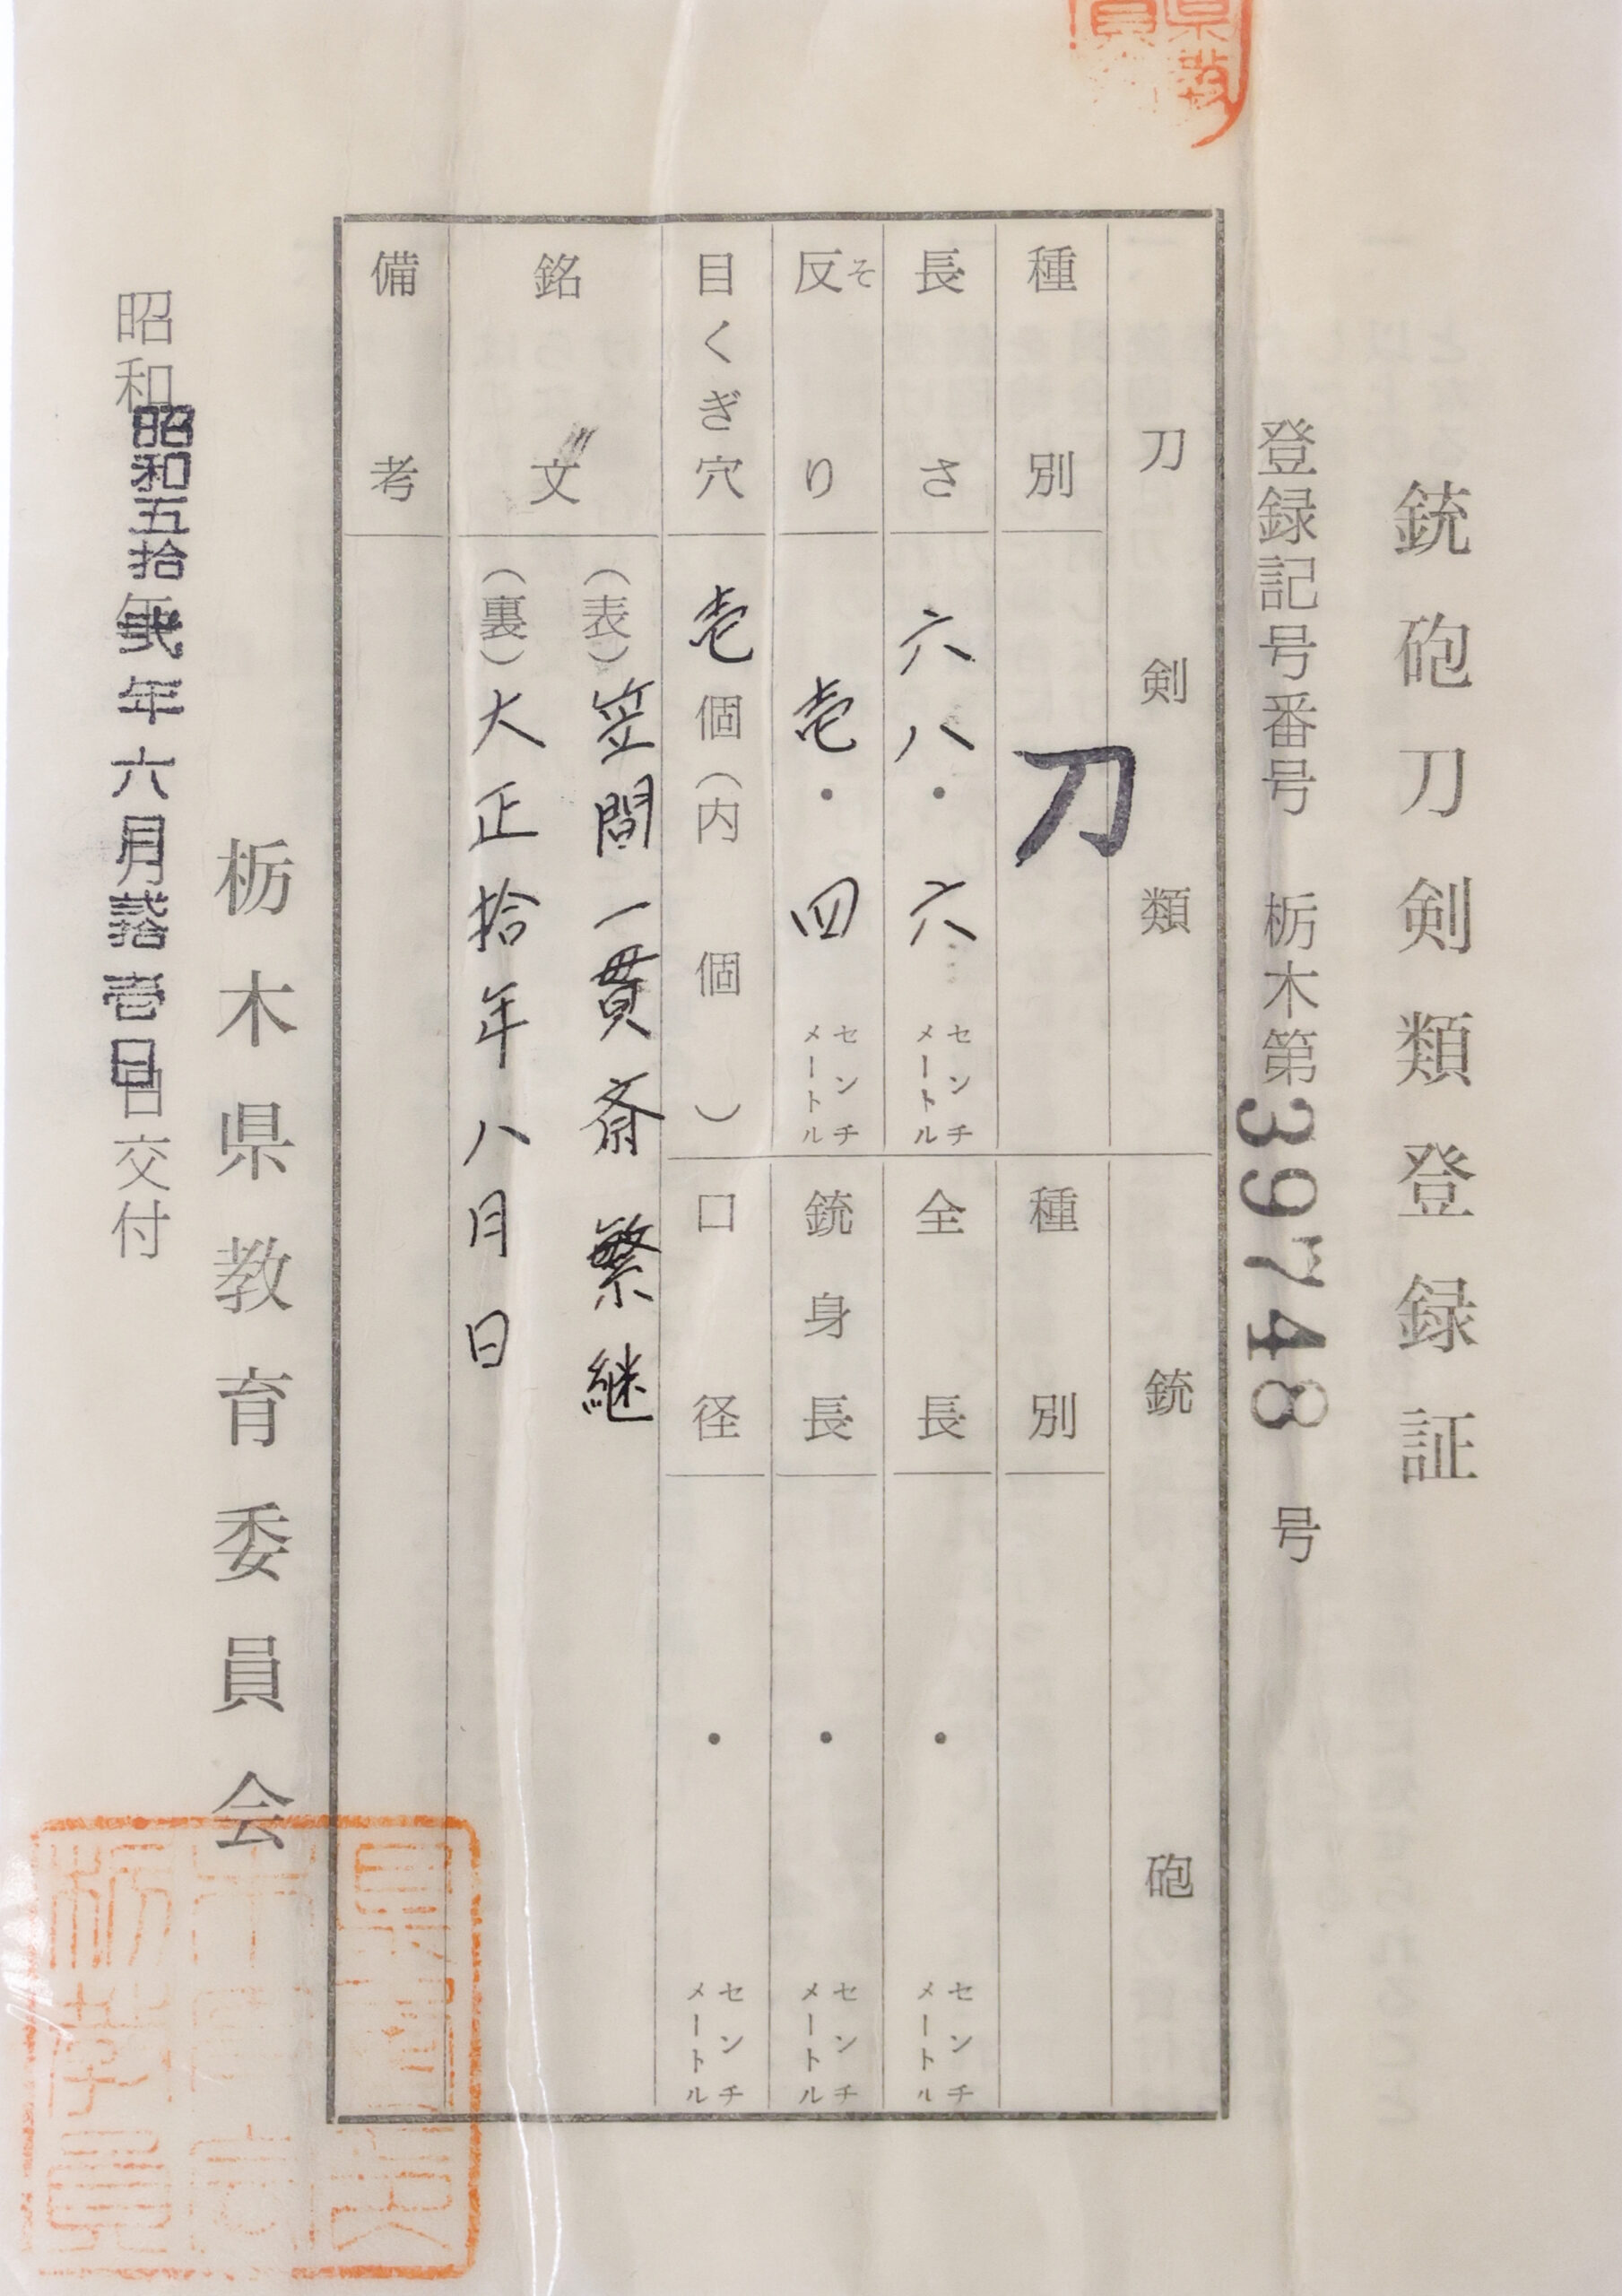 銃砲刀剣類登録証
登録記号番号 栃木第39748号
刀剣類
種別 刀
長さ 六八・六 センチメートル
反り そ 壱・四 センチメートル
目くぎ穴 壱個(内 個)
銘文
(表)笠間一貫斎繁継
(裏)大正拾年八月日
備考
銃砲
種別
全長 ・ センチメートル
銃身長 ・ センチメートル
口径 ・ センチメートル
栃木県教育委員会
昭和 昭和五拾弐年六月 壱日交付